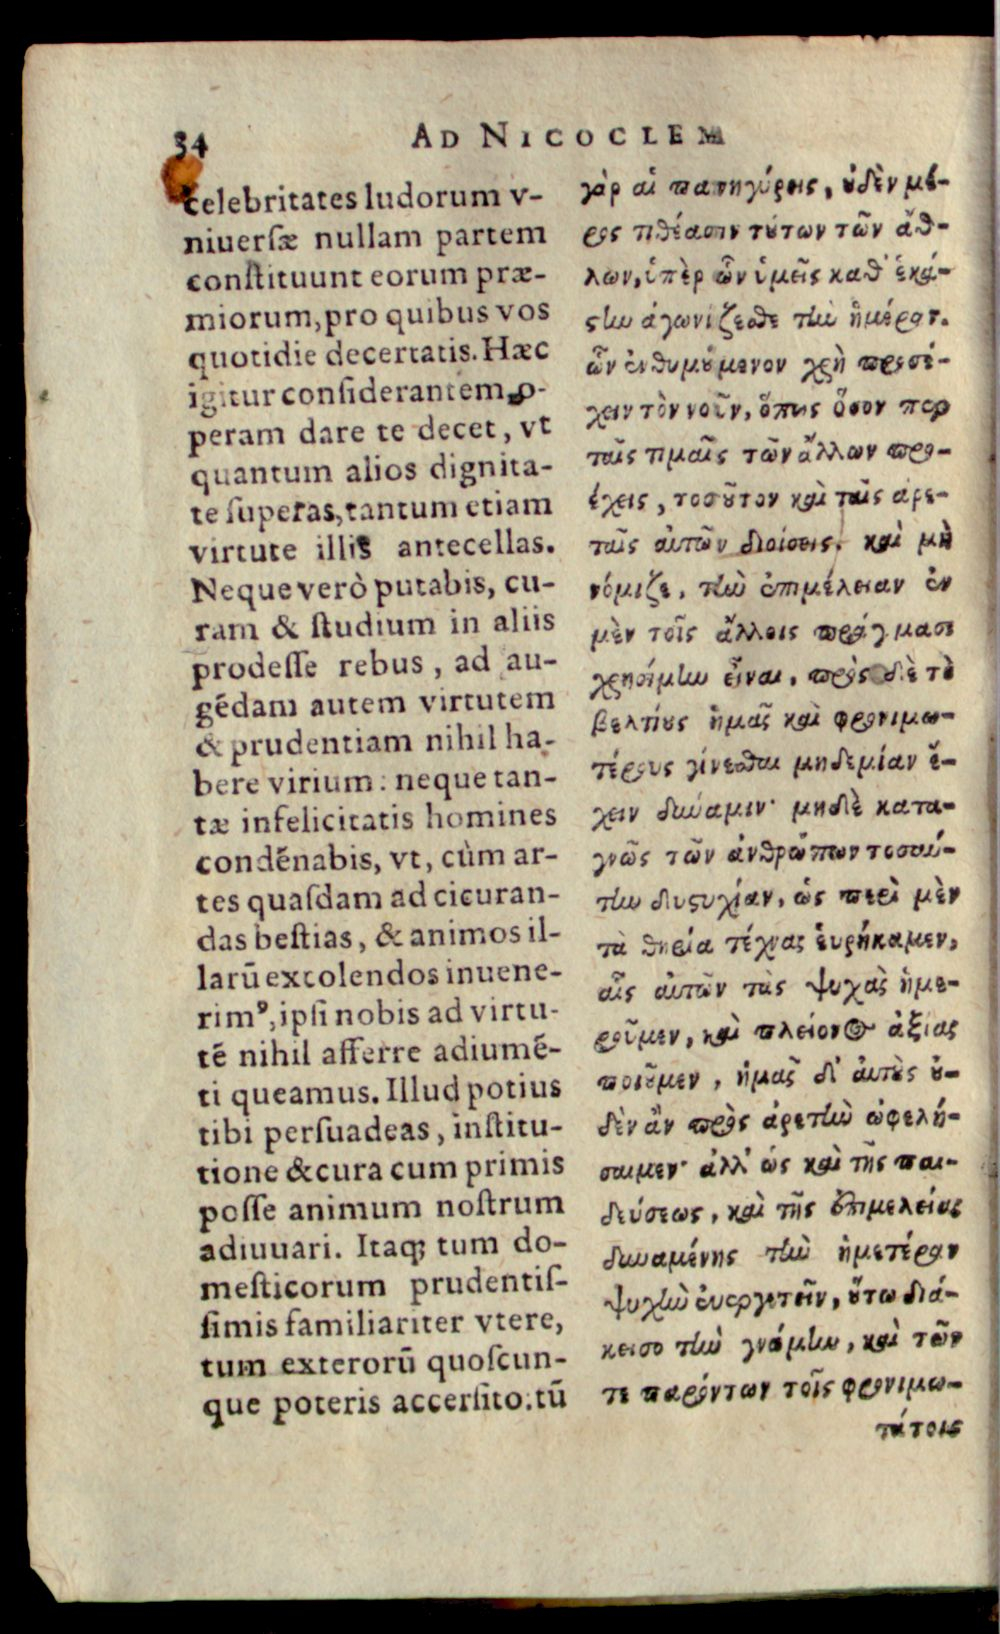 34
AD NICOCLEM
celebritates ludorum v-
niuersæ nullam partem
constituunt eorum præ-
miorum, pro quibus vos
quotidie decertatis. Hæc
igitur considerantem, o-
peram dare te decet, vt
quantum alios dignita-
te superas, tantum etiam
virtute illis antecellas.
Neque verò putabis, cu-
ram & studium in aliis
prodesse rebus, ad au-
gēdam autem virtutem
& prudentiam nihil ha-
bere virium: neque tan-
tæ infelicitatis homines
condēnabis, vt, cùm ar-
tes quasdam ad cicuran-
das bestias, & animos il-
larū excolendos inuene-
rimꝰ, ipsi nobis ad virtu-
tē nihil afferre adiumē-
ti queamus. Illud potius
tibi persuadeas, institu-
tione & cura cum primis
posse animum nostrum
adiuuari. Itaq; tum do-
mesticorum prudentis-
simis familiariter vtere,
tum exterorū quoscun-
que poteris accersito: tū
γὰρ αἱ πανηγύρεις, οὐδὲν μέ-
ρος τιθέασιν τούτων τῶν ἄθ-
λων, ὑπὲρ ὧν ὑμεῖς καθ' ἑκά-
στην ἀγωνίζεσθε τὴν ἡμέραν.
ὧν ἐνθυμούμενον χρὴ προσέ-
χειν τὸν νοῦν, ὅπως ὅσον περ
ταῖς τιμαῖς τῶν ἄλλων προ-
έχεις, τοσοῦτον καὶ ταῖς ἀρε-
ταῖς αὐτῶν διοίσεις. καὶ μὴ
νόμιζε, τὴν ἐπιμέλειαν ἐν
μὲν τοῖς ἄλλοις πράγμασι
χρησίμην εἶναι, πρὸς δὲ τὸ
βελτίους ἡμᾶς καὶ φρονιμω-
τέρους γίνεσθαι μηδεμίαν ἔ-
χειν δύναμιν· μηδὲ κατα-
γνῶς τῶν ἀνθρώπων τοσαύ-
την δυστυχίαν, ὡς περὶ μὲν
τὰ θηρία τέχνας εὑρήκαμεν,
αἷς αὐτῶν τὰς ψυχὰς ἡμε-
ροῦμεν, καὶ πλείονος ἀξίας
ποιοῦμεν, ἡμᾶς δ' αὐτοὺς οὐ-
δὲν ἂν πρὸς ἀρετὴν ὠφελή-
σαιμεν· ἀλλ' ὡς καὶ τῆς παι-
δεύσεως, καὶ τῆς ἐπιμελείας
δυναμένης τὴν ἡμετέραν
ψυχὴν εὐεργετεῖν, οὕτω διά-
κεισο τὴν γνώμην, καὶ τῶν
τε παρόντων τοῖς φρονιμω-
τάτοις